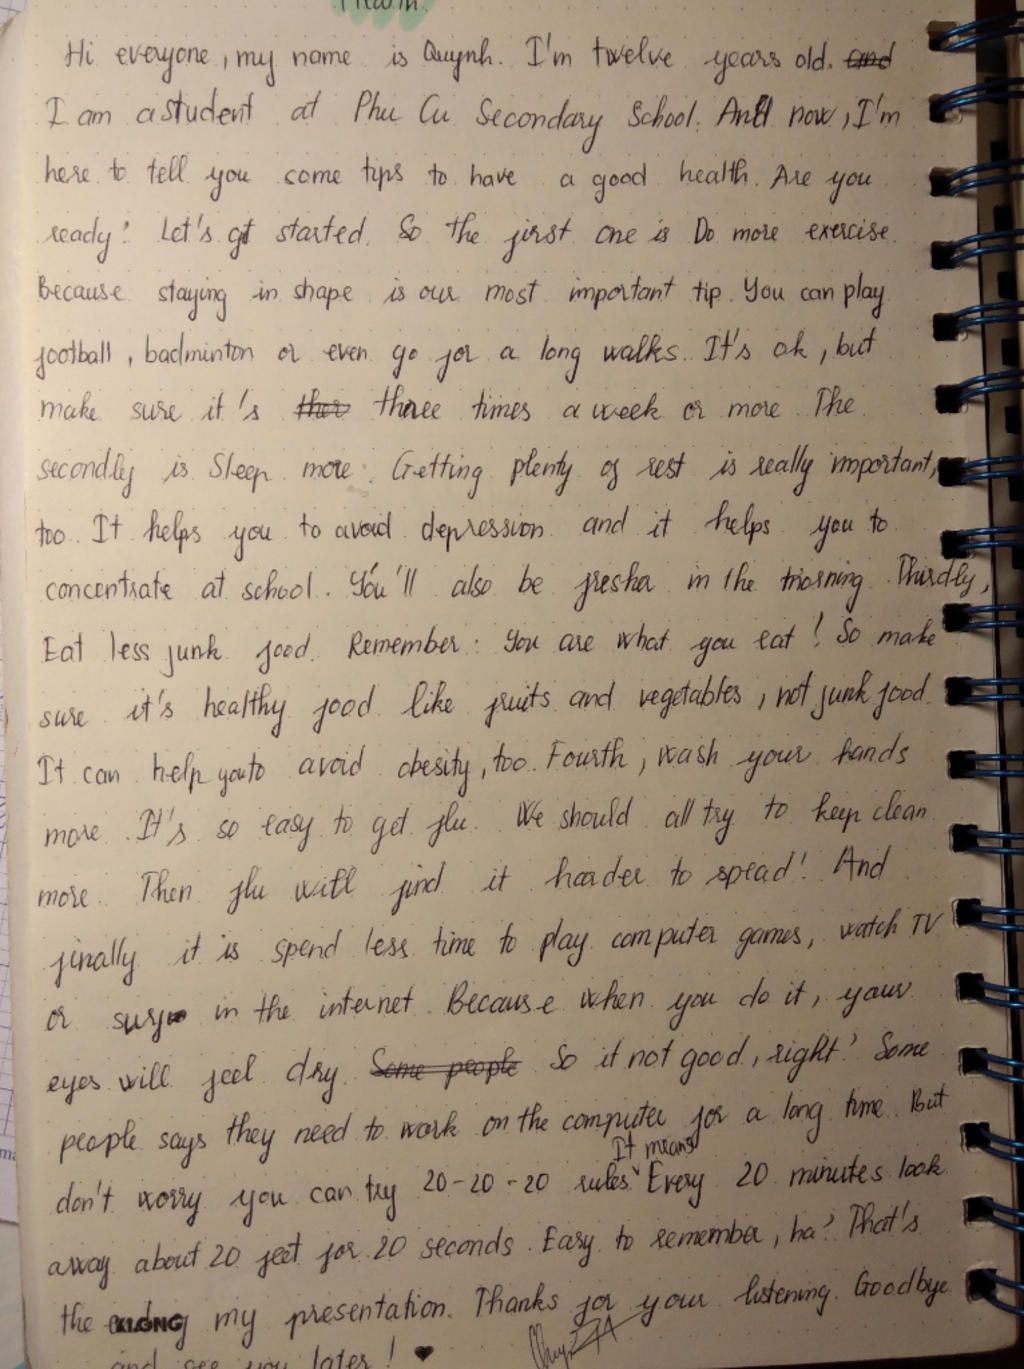 Health.
Hi everyone, my name is Quynh. I'm twelve years old. and
I am a student at Phu Cu Secondary School. And now, I'm
here to tell you some tips to have a good health. Are you
ready? Let's get started. So the first one is Do more exercise.
Because staying in shape is our most important tip. You can play
football, badminton or even go for a long walks. It's ok, but
make sure it's ther three times a week or more. The
secondly is Sleep more. Getting plenty of rest is really important,
too. It helps you to avoid depression and it helps you to
concentrate at school. You'll also be fresher in the morning. Thirdly,
Eat less junk food. Remember: You are what you eat! So make
sure it's healthy food like fruits and vegetables, not junk food.
It can help you to avoid obesity, too. Fourth, wash your hands
more. It's so easy to get flu. We should all try to keep clean
more. Then flu will find it harder to spead! And
finally it is spend less time to play computer games, watch TV
or surf in the internet. Because when you do it, your
eyes will feel dry. Some people So it not good, right? Some
people says they need to work on the computer for a long time. But
It means
don't worry you can try 20-20-20 rules. Every 20 minutes look
away about 20 feet for 20 seconds. Easy to remember, ha? That's
the my presentation. Thanks for your listening. Goodbye
KLONG
and see you later!